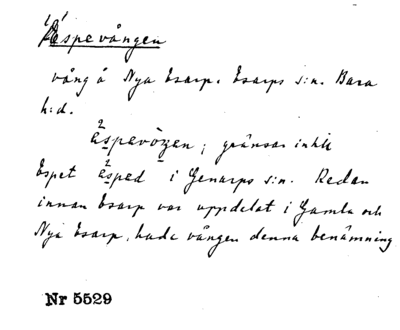 Äspevången
vång å Nya Esarp. Esarps s:n. Bara
h:d.
äspevo̊ŋen; gränsar intill
Espet äsped i Genarps s:n. Redan
innan Esarp var uppdelat i Gamla och
Nya Esarp, hade vången denna benämning
Nr 5529